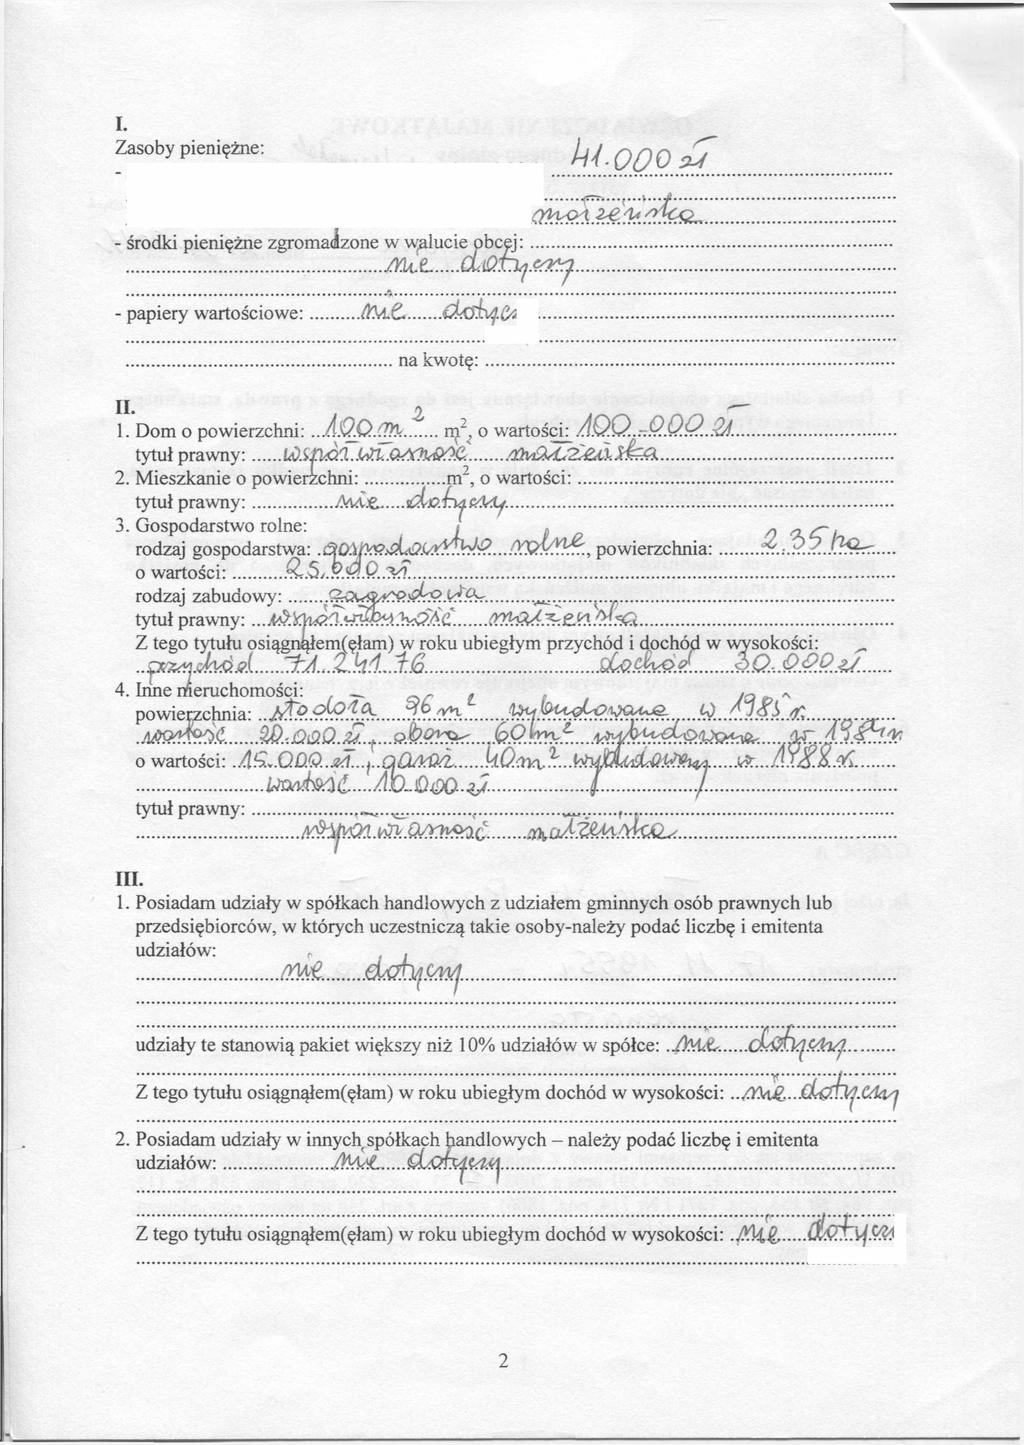 I.
Zasoby pieniężne:
- 41.000 zł
małżeńska
- środki pieniężne zgromadzone w walucie obcej:
nie dotyczy
- papiery wartościowe: nie dotycz
na kwotę:
II.
1. Dom o powierzchni: 100 m² m², o wartości: 100.000 zł
tytuł prawny: współwłasność małżeńska
2. Mieszkanie o powierzchni: m², o wartości:
tytuł prawny: nie dotyczy
3. Gospodarstwo rolne:
rodzaj gospodarstwa: gospodarstwo rolne, powierzchnia: 2.35 ha
o wartości: 25.000 zł
rodzaj zabudowy: zagrodowa
tytuł prawny: współwłasność małżeńska
Z tego tytułu osiągnąłem(ęłam) w roku ubiegłym przychód i dochód w wysokości:
przychód 71.241,76 dochód 30.000 zł
4. Inne nieruchomości:
powierzchnia: stodoła 96 m² wybudowana w 1985 r.
wartość 20.000 zł, obora 60 m² wybudowana w
o wartości: 15.000 zł, garaż 40 m² wybudowany w 1988 r.
wartość 10.000 zł
tytuł prawny:
współwłasność małżeńska
III.
1. Posiadam udziały w spółkach handlowych z udziałem gminnych osób prawnych lub
przedsiębiorców, w których uczestniczą takie osoby-należy podać liczbę i emitenta
udziałów:
nie dotyczy
udziały te stanowią pakiet większy niż 10% udziałów w spółce: nie dotyczy
Z tego tytułu osiągnąłem(ęłam) w roku ubiegłym dochód w wysokości: nie dotyczy
2. Posiadam udziały w innych spółkach handlowych – należy podać liczbę i emitenta
udziałów: nie dotyczy
Z tego tytułu osiągnąłem(ęłam) w roku ubiegłym dochód w wysokości: nie dotycz
2